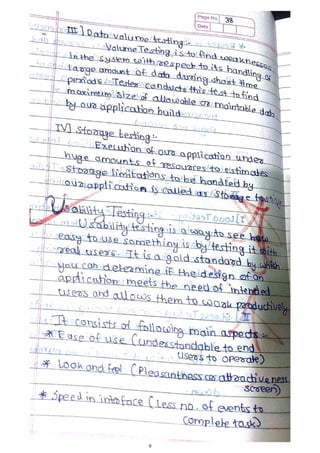 Page No. 38
Date
III] Data volume testing:-
Volume Testing is to find weaknesses
in the system with respect to its handling of
large amount of data during short time
periods. Tester conducts this test to find
maximum size of allowable or maintable data
by our application build
IV] Storage testing:-
Execution of our application under
huge amounts of resources to estimates
storage limitations to be handled by
our application is called as Storage testing
Usability Testing:-
Usability testing is a way to see how
easy to use something is by testing it with
real users. It is a gold standard by which
you can determine if the design of an
application meets the need of intended
users and allows them to work productively
It consists of following main aspects:-
* Ease of use (understandable to end
users to operate)
* Look and feel (Pleasuntness or attractiveness
screen)
* Speed in interface (Less no. of events to
complete task)
9